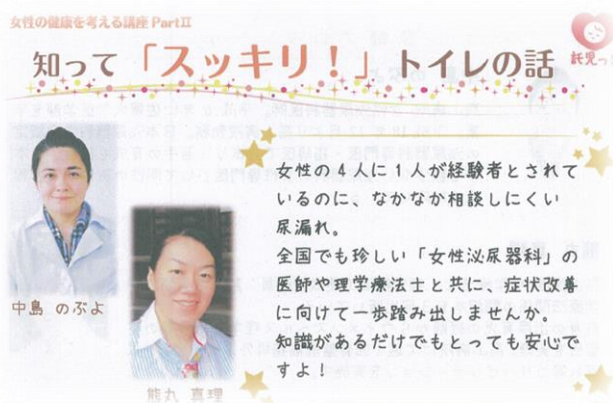 女性の健康を考える講座 PartⅡ
知って「スッキリ！」トイレの話
託児っ
女性の４人に１人が経験者とされて
いるのに、なかなか相談しにくい
尿漏れ。
全国でも珍しい「女性泌尿器科」の
医師や理学療法士と共に、症状改善
に向けて一歩踏み出しませんか。
知識があるだけでもとっても安心で
すよ！
中島 のぶよ
熊丸 真理